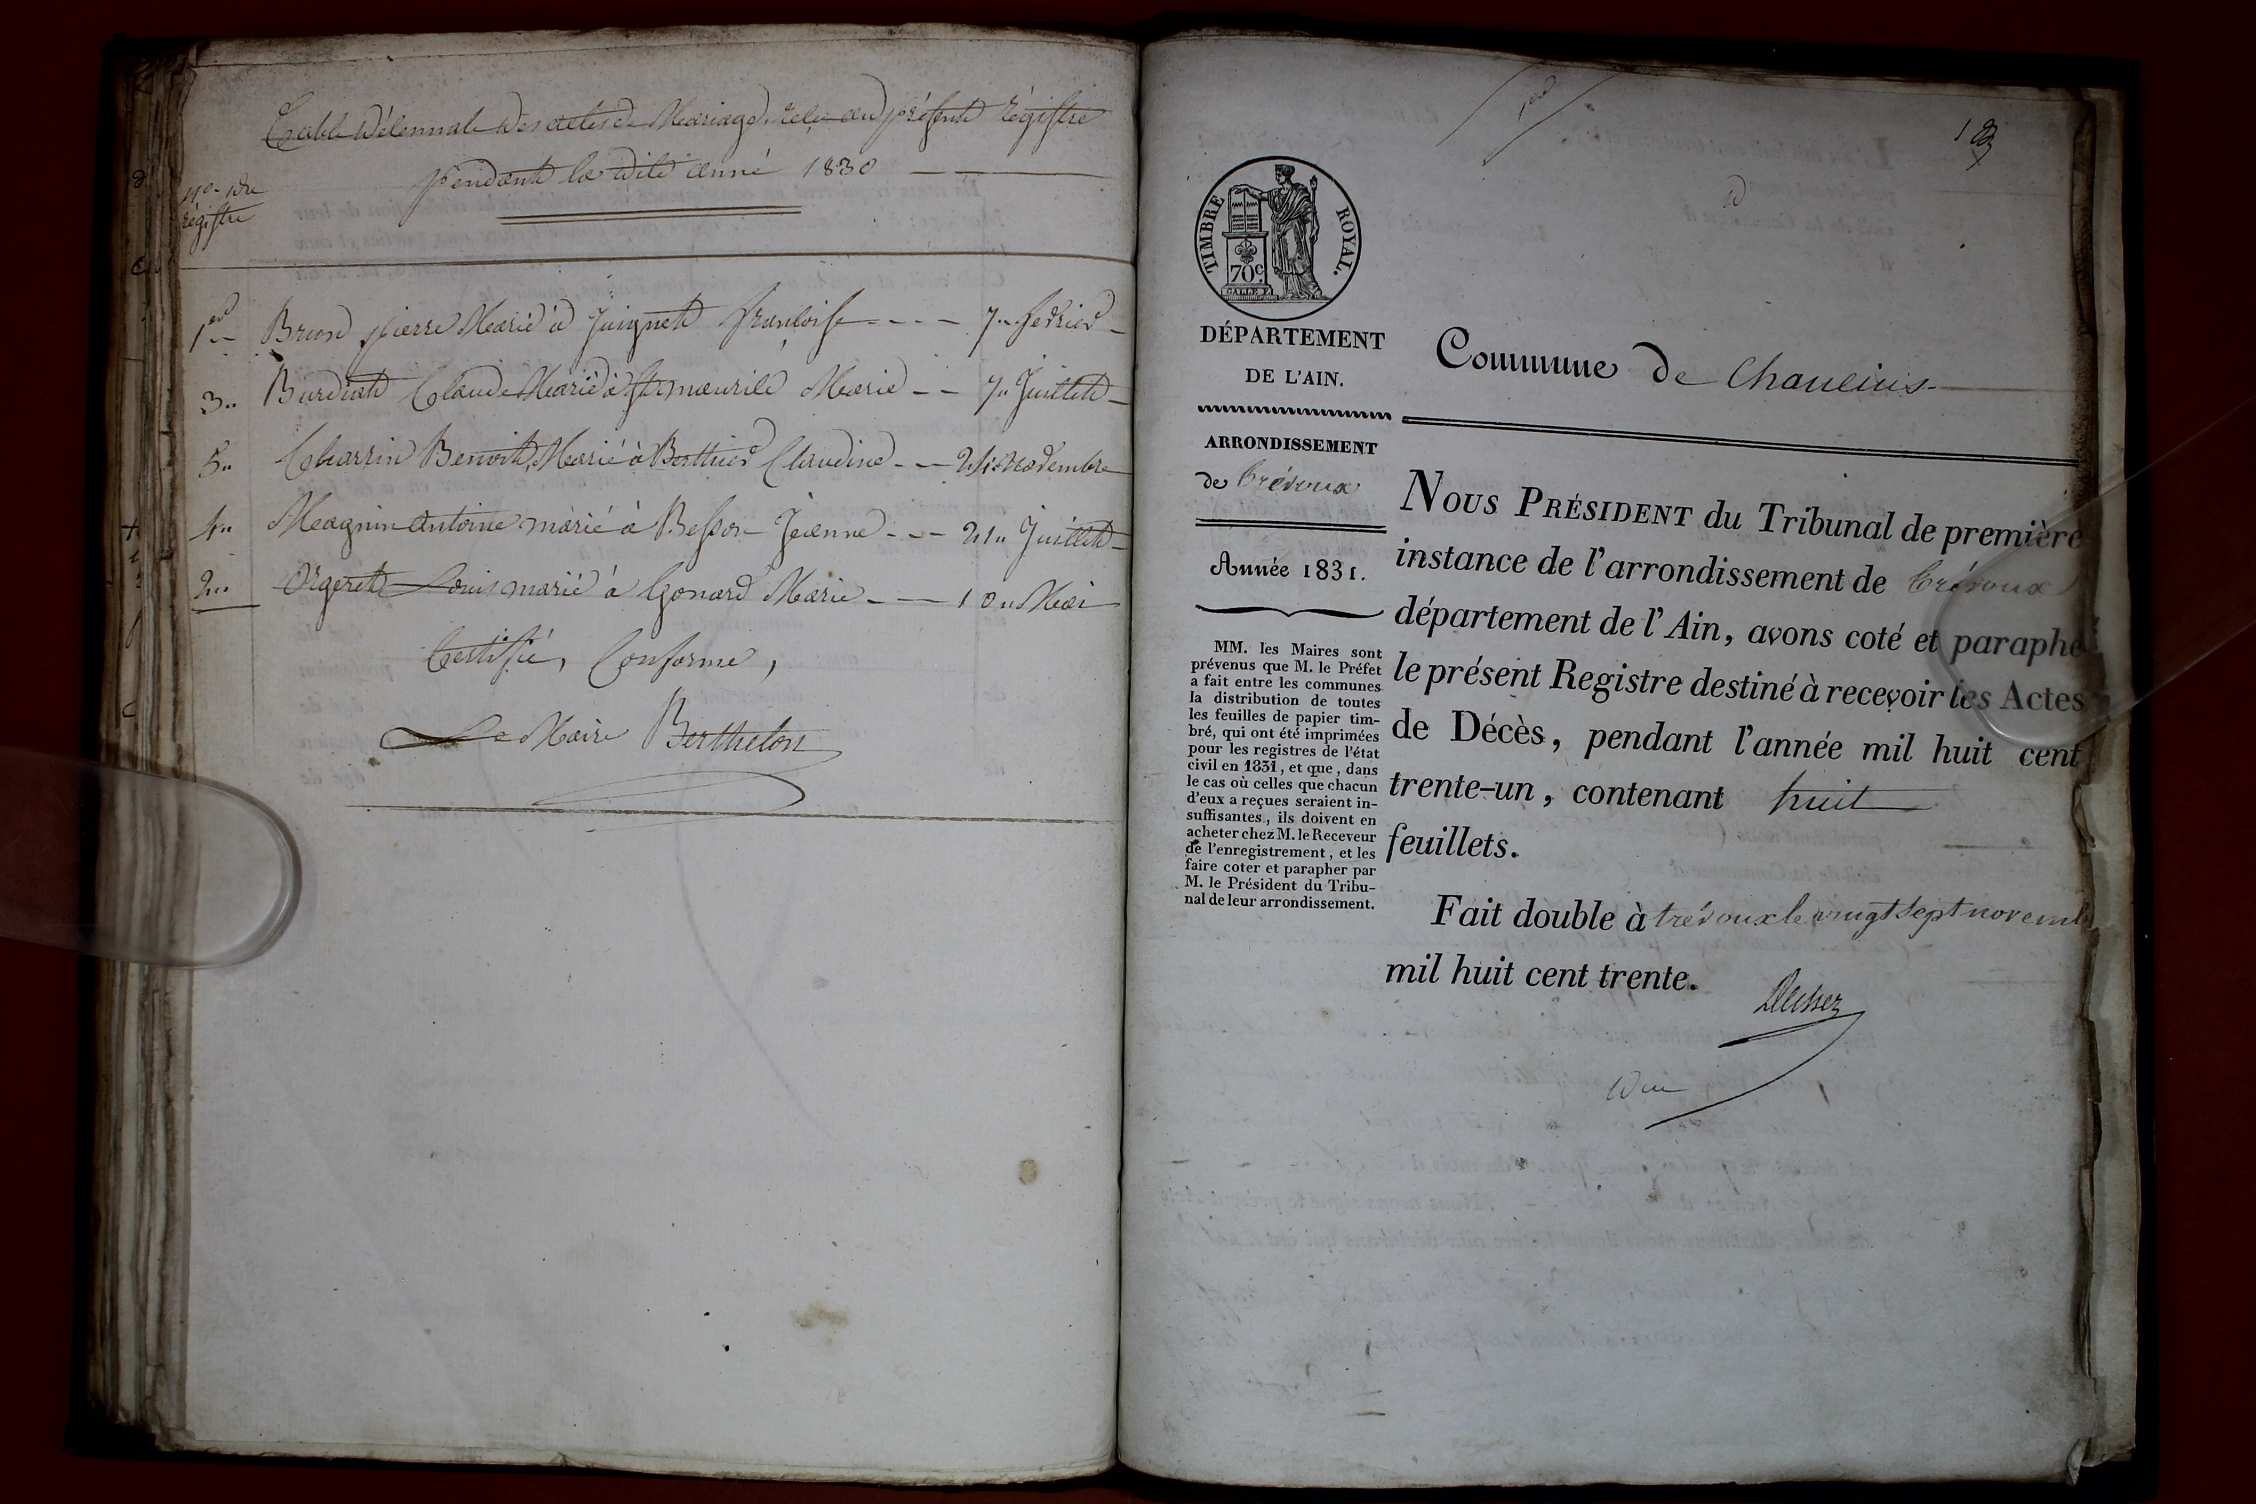 Table Décennale des actes de Mariage, reçu au présent régistre
pendant la dite anné 1830
No. du
régistre
1er Brun pierre Marié à Juignet françoise - - - 7 .. fevrier
3 .. Burdiat Claude Marié à Marie - - 7 .. Juillet
5 .. Charrin Benoit, Marié à Berthier Claudine - - 24 .. Novembre
4 .. Magnin antoine marié à Besson Jeanne - - - 21 .. Juillet
2 .. Orgeret Louis marié à Gonard Marie - - 10 .. Mai
Certifié, Conforme,
Le Maire Berthelon
1er
TIMBRE ROYAL.
70c
DÉPARTEMENT
DE L'AIN.
ARRONDISSEMENT
de Trévoux
Année 1831.
MM. les Maires sont
prévenus que M. le Préfet
a fait entre les communes
la distribution de toutes
les feuilles de papier tim-
bré, qui ont été imprimées
pour les registres de l'état
civil en 1831, et que, dans
le cas où celles que chacun
d'eux a reçues seraient in-
suffisantes, ils doivent en
acheter chez M. le Receveur
de l'enregistrement, et les
faire coter et parapher par
M. le Président du Tribu-
nal de leur arrondissement.
Commune de Chaneins
NOUS PRÉSIDENT du Tribunal de première
instance de l'arrondissement de Trévoux
département de l'Ain, avons coté et paraphé
le présent Registre destiné à recevoir les Actes
de Décès, pendant l'année mil huit cent
trente-un, contenant huit
feuillets.
Fait double à trévoux le vingt sept novemb
mil huit cent trente.